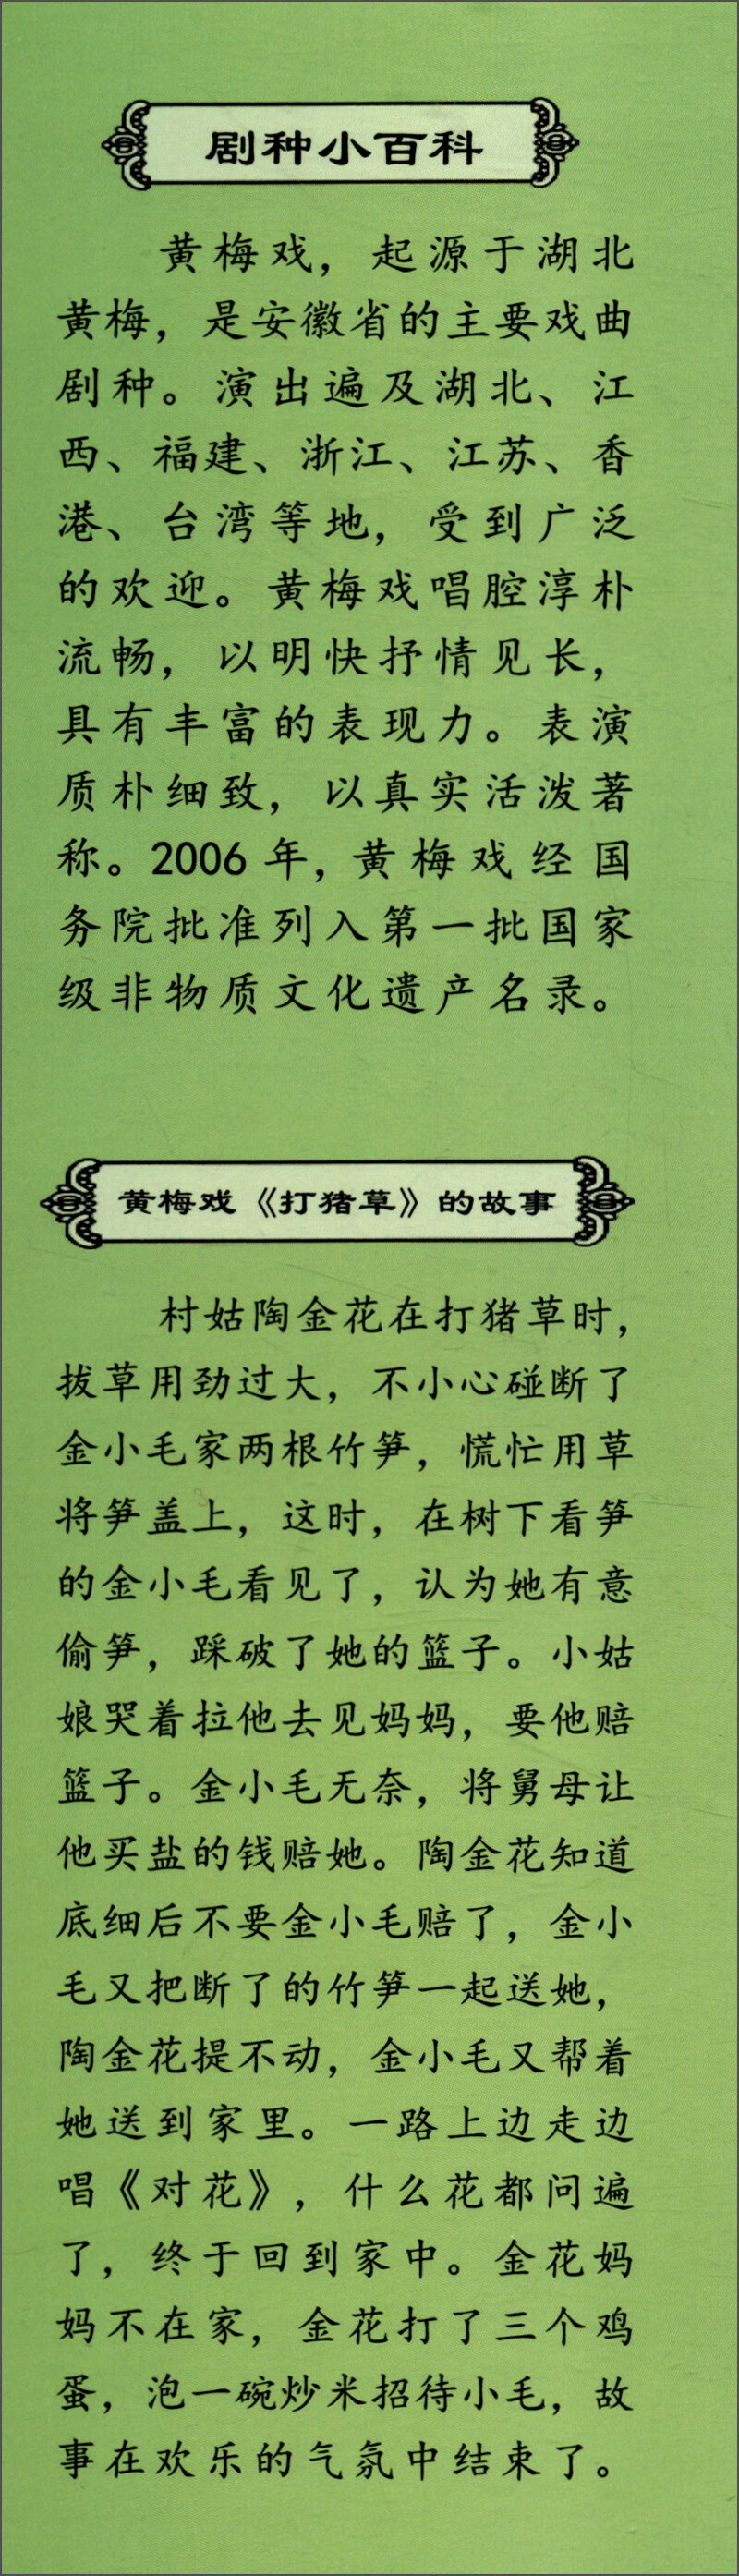 剧种小百科
黄梅戏，起源于湖北
黄梅，是安徽省的主要戏曲
剧种。演出遍及湖北、江
西、福建、浙江、江苏、香
港、台湾等地，受到广泛
的欢迎。黄梅戏唱腔淳朴
流畅，以明快抒情见长，
具有丰富的表现力。表演
质朴细致，以真实活泼著
称。2006 年，黄梅戏经国
务院批准列入第一批国家
级非物质文化遗产名录。
黄梅戏《打猪草》的故事
村姑陶金花在打猪草时，
拔草用劲过大，不小心碰断了
金小毛家两根竹笋，慌忙用草
将笋盖上，这时，在树下看笋
的金小毛看见了，认为她有意
偷笋，踩破了她的篮子。小姑
娘哭着拉他去见妈妈，要他赔
篮子。金小毛无奈，将舅母让
他买盐的钱赔她。陶金花知道
底细后不要金小毛赔了，金小
毛又把断了的竹笋一起送她，
陶金花提不动，金小毛又帮着
她送到家里。一路上边走边
唱《对花》，什么花都问遍
了，终于回到家中。金花妈
妈不在家，金花打了三个鸡
蛋，泡一碗炒米招待小毛，故
事在欢乐的气氛中结束了。